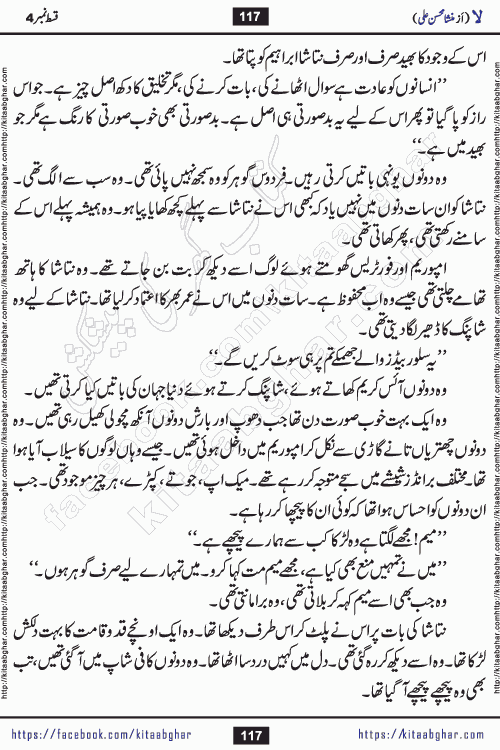 لا (از منشا محسن علی)
117
قسط نمبر 4
اس کے وجود کا بھید صرف اور صرف نتاشا ابراہیم کو پتا تھا۔
’’انسانوں کو عادت ہے سوال اٹھانے کی، بات کرنے کی، مگر تخلیق کا دکھ اصل چیز ہے۔ جو اس
راز کو پا گیا تو پھر اس کے لیے یہ بدصورتی ہی اصل ہے۔ بدصورتی بھی خوب صورتی کا رنگ ہے مگر جو
بھید میں ہے۔‘‘
وہ دونوں یونہی باتیں کرتی رہیں۔ فردوس گوہر کو وہ سمجھ نہیں پائی تھی۔ وہ سب سے الگ تھی۔
نتاشا کو ان سات دنوں میں نہیں یاد کہ کبھی اس نے نتاشا سے پہلے کچھ کھایا پیا ہو۔ وہ ہمیشہ پہلے اس کے
سامنے رکھتی تھی، پھر کھاتی تھی۔
امپوریم اور فورٹریس گھومتے ہوئے لوگ اسے دیکھ کر بت بن جاتے تھے۔ وہ نتاشا کا ہاتھ
تھامے چلتی تھی جیسے وہ اب محفوظ ہے۔ سات دنوں میں اس نے عمر بھر کا اعتماد کر لیا تھا۔ نتاشا کے لیے وہ
شاپنگ کا ڈھیر لگا دیتی تھی۔
’’یہ سلور بیڈز والے جھمکے تم پر ہی سوٹ کریں گے۔‘‘
وہ دونوں آئس کریم کھاتے ہوئے، شاپنگ کرتے ہوئے دنیا جہان کی باتیں کیا کرتی تھیں۔
وہ ایک بہت خوب صورت دن تھا جب دھوپ اور بارش دونوں آنکھ مچولی کھیل رہی تھیں۔ وہ
دونوں چھتریاں تانے گاڑی سے نکل کر امپوریم میں داخل ہوئی تھیں۔ جیسے وہاں لوگوں کا سیلاب آیا ہوا
تھا۔ مختلف برانڈز شیشے میں سجے متوجہ کر رہے تھے۔ میک اپ، جوتے، کپڑے، ہر چیز موجود تھی۔ جب
ان دونوں کو احساس ہوا تھا کہ کوئی ان کا پیچھا کر رہا ہے۔
’’میم! مجھے لگتا ہے وہ لڑکا کب سے ہمارے پیچھے ہے۔‘‘
’’میں نے تمہیں منع بھی کیا ہے، مجھے میم مت کہا کرو۔ میں تمہارے لیے صرف گوہر ہوں۔‘‘
وہ جب بھی اسے میم کہہ کر بلاتی تھی، وہ برا مانتی تھی۔
نتاشا کی بات پر اس نے پلٹ کر اس طرف دیکھا تھا۔ وہ ایک اونچے قد و قامت کا بہت دلکش
لڑکا تھا۔ وہ اسے دیکھ کر رہ گئی تھی۔ دل میں کہیں درد سا اٹھا تھا۔ وہ دونوں کافی شاپ میں آ گئی تھیں، تب
بھی وہ پیچھے پیچھے آ گیا تھا۔
https://facebook.com/kitaabghar
117
https://kitaabghar.com